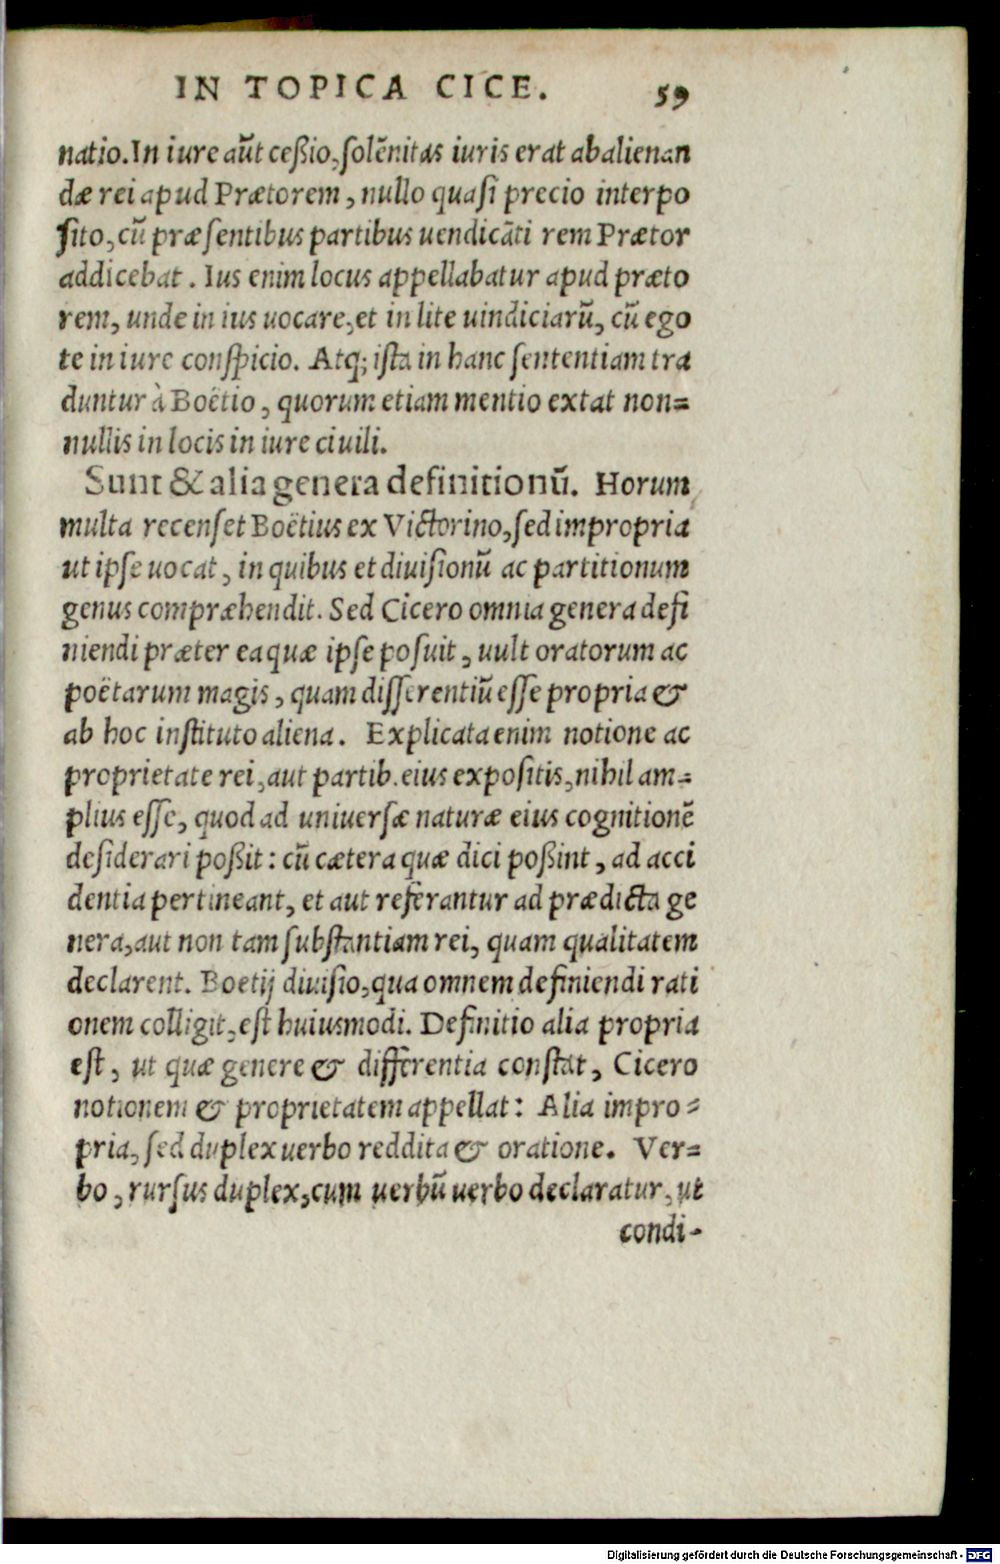 IN TOPICA CICE. 59
natio. In iure aũt ceßio, solẽnitas iuris erat abalienan
dæ rei apud Prætorem, nullo quasi precio interpo
sito, cũ præsentibus partibus uendicãti rem Prætor
addicebat. Ius enim locus appellabatur apud præto
rem, unde in ius uocare, et in lite uindiciarũ, cũ ego
te in iure conspicio. Atq; ista in hanc sententiam tra
duntur à Boëtio, quorum etiam mentio extat non-
nullis in locis in iure ciuili.
Sunt & alia genera definitionũ. Horum
multa recenset Boëtius ex Victorino, sed impropria
ut ipse uocat, in quibus et diuisionũ ac partitionum
genus compræhendit. Sed Cicero omnia genera defi
niendi præter ea quæ ipse posuit, uult oratorum ac
poëtarum magis, quam differentiũ esse propria &
ab hoc instituto aliena. Explicata enim notione ac
proprietate rei, aut partib. eius expositis, nihil am-
plius esse, quod ad uniuersæ naturæ eius cognitionẽ
desiderari poßit: cũ cætera quæ dici poßint, ad acci
dentia pertineant, et aut referantur ad prædicta ge
nera, aut non tam substantiam rei, quam qualitatem
declarent. Boetij diuisio, qua omnem definiendi rati
onem colligit, est huiusmodi. Definitio alia propria
est, ut quæ genere & differentia constat, Cicero
notionem & proprietatem appellat: Alia impro-
pria, sed duplex uerbo reddita & oratione. Ver-
bo, rursus duplex, cum uerbũ uerbo declaratur, ut
condi-
Digitalisierung gefördert durch die Deutsche Forschungsgemeinschaft - DFG